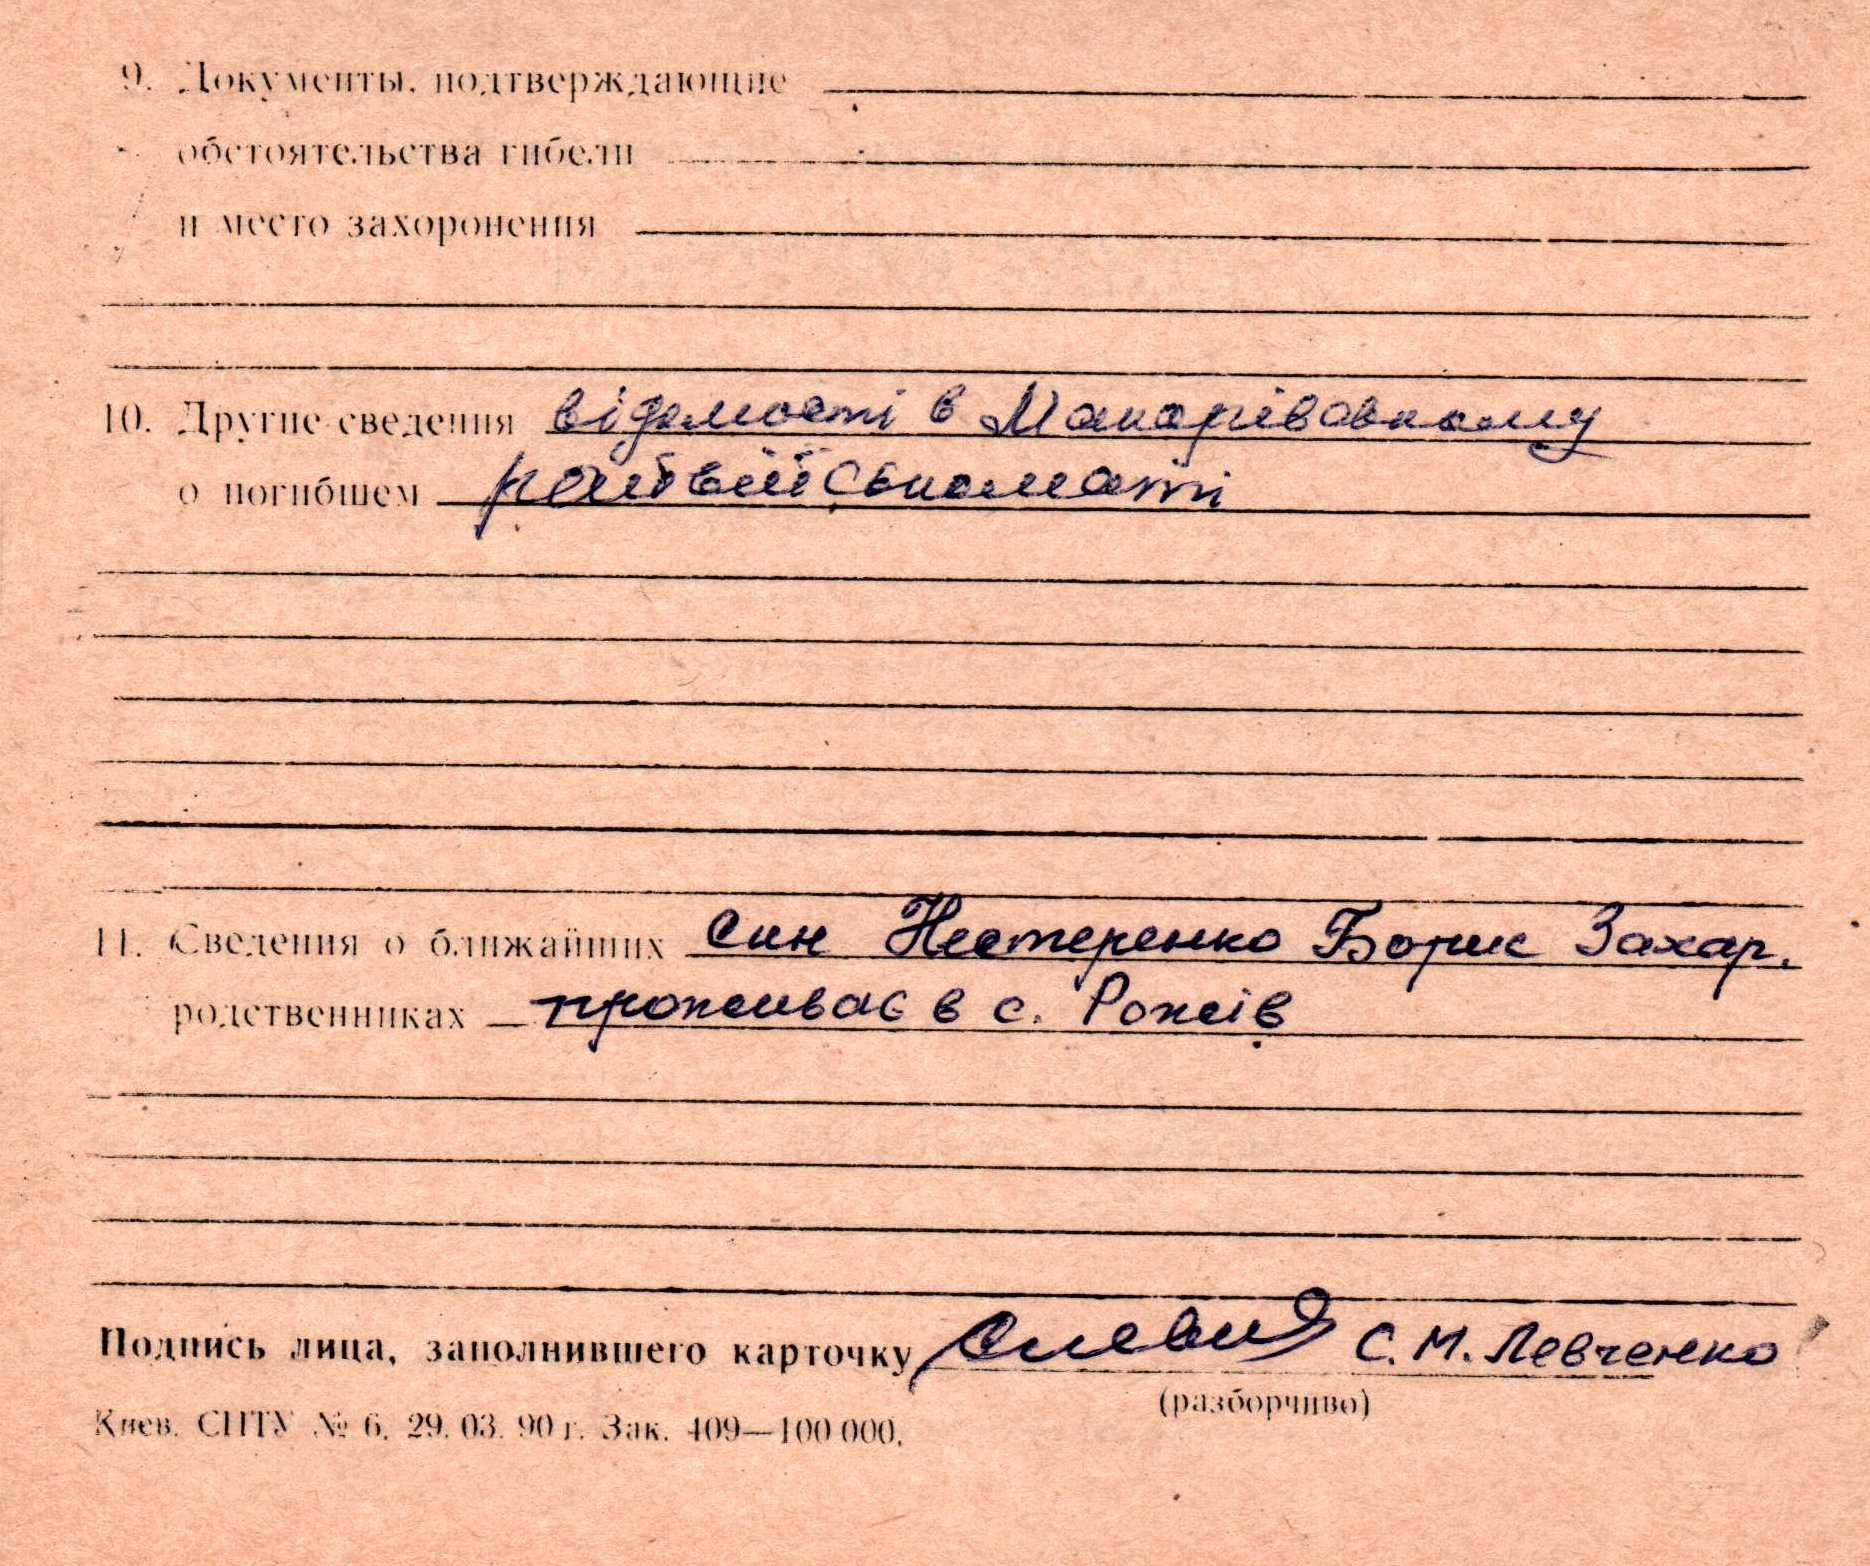 9. Документы, подтверждающие
обстоятельства гибели
и место захоронения
10. Другие сведения відомості в Макарівському
о погибшем райвійськоматі
11. Сведения о ближайших син Нестеренко Борис Захар.
родственниках проживає в с. Рожів
Подпись лица, заполнившего карточку С. М. Левченко
(разборчиво)
Киев. СПТУ № 6. 29. 03. 90 г. Зак. 409—100 000.